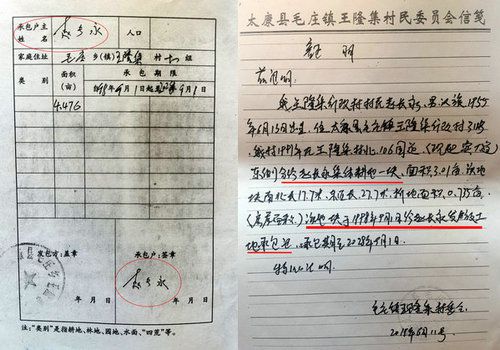 承包户主
姓名
赵长永
人口
家庭住址
毛庄乡(镇)王隆集村十一组
类别
面积
(亩)
承包期限
1998年9月1日起至 年9月1日
4.476
发包方:盖章
承包户:签章
赵长永
年 月 日
年 月 日
注:"类别"是指耕地、林地、园地、水面、"四荒"等。
太康县毛庄镇王隆集村民委员会信笺
证明
兹证明
我王隆集行政村村民赵长永,男,汉族,1955
年6月15日出生,住太康县毛庄镇王隆集行政村
我村1998年在王隆集村北,106国道
东侧分给赵长永集体耕地一块,面积3.01亩,该地
块南北长17.7米,东西长27.7米,折地面积0.735亩,
该地块于1998年9月1日给赵长永发放土
地承包证,承包期至2028年9月1日。
特此证明
毛庄镇王隆集村委会
2018年6月11号